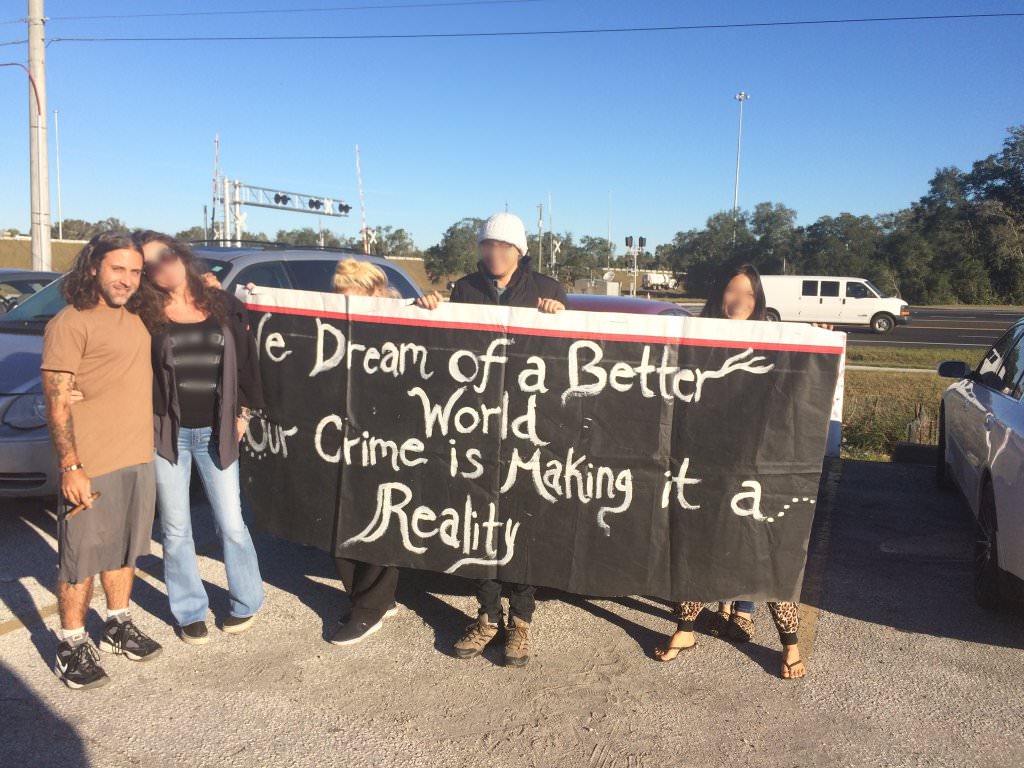 We Dream of a Better
World
Our Crime is Making it a....
Reality